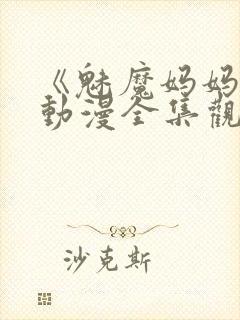 《魅魔妈妈
動漫全集觀
沙克斯